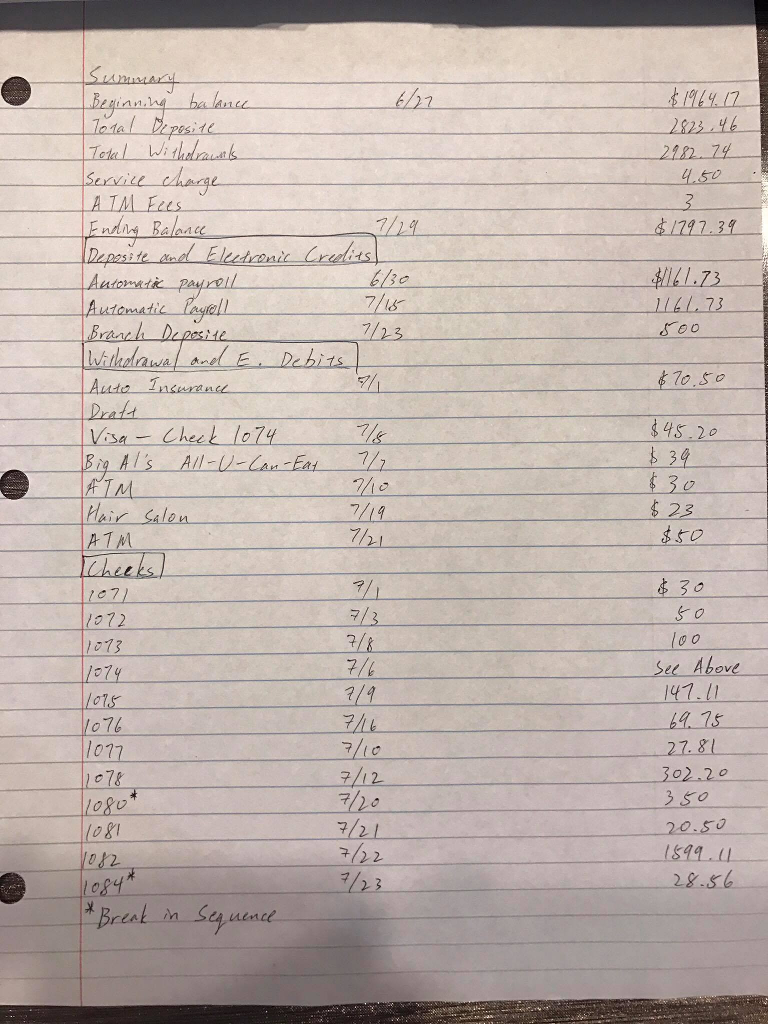 Summary
Beginning balance 6/27 $1964.17
Total Deposite 2823.46
Total Withdrawals 2982.74
Service charge 4.50
ATM Fees 3
Ending Balance 7/29 $1797.39
Deposite and Electronic Credits
Automatic payroll 6/30 $1161.73
Automatic Payroll 7/15 1161.73
Branch Deposite 7/23 500
Withdrawal and E. Debits
Auto Insurance 7/1 $70.50
Draft
Visa - Check 1074 7/5 $45.20
Big Al's All-U-Can-Eat 7/7 $39
ATM 7/10 $30
Hair Salon 7/19 $23
ATM 7/21 $50
Checks
1071 7/1 $30
1072 7/3 50
1073 7/8 100
1074 7/6 See Above
1075 7/9 147.11
1076 7/16 69.75
1077 7/10 27.81
1078 7/12 302.20
1080* 7/20 350
1081 7/21 20.50
1082 7/22 1599.11
1084* 7/23 28.56
*Break in Sequence